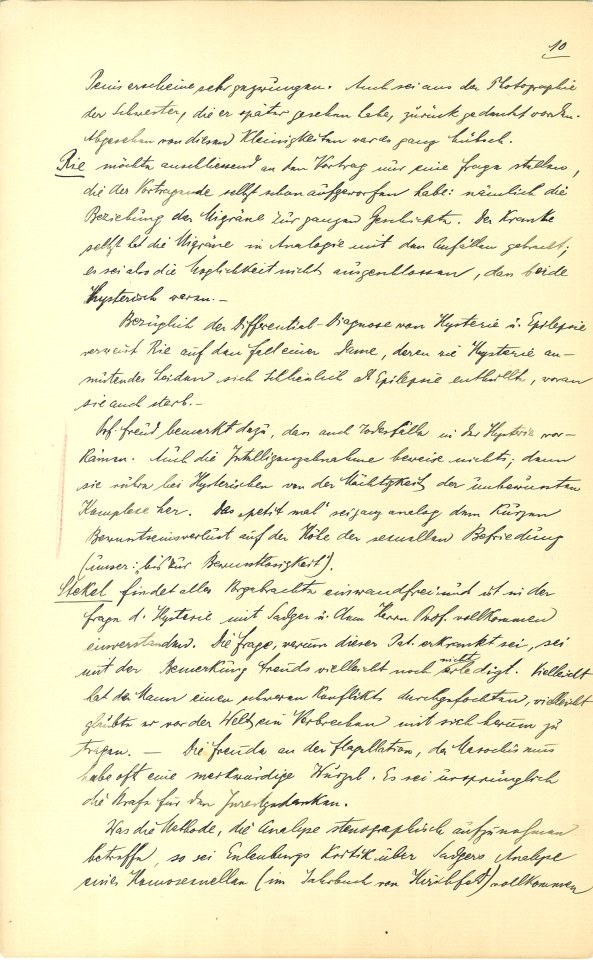 10
Penis erscheine sehr gezwungen. Auch sei aus der Photographie
der Schwester, die er später gesehen habe, zurück gedacht worden.
Abgesehen von diesen Kleinigkeiten war es ganz hübsch.
Rie möchte anschliessend an den Vortrag nur eine Frage stellen,
die der Vortragende selbst schon aufgeworfen habe: nämlich die
Beziehung der Migräne zur ganzen Geschichte. Der Kranke
selbst hat die Migräne in Analogie mit den Anfällen gebracht;
es sei also die Möglichkeit nicht ausgeschlossen, dass beide
hysterisch waren.–
Bezüglich der Differential-Diagnose von Hysterie u. Epilepsie
verweist Rie auf den Fall einer Dame, deren wie Hysterie an-
mutendes Leiden sich schliesslich als Epilepsie enthüllt, woran
sie auch starb.–
Prof. Freud bemerkt dazu, dass auch Todesfälle in der Hysterie vor-
kämen. Auch die Intelligenzabnahme beweise nichts; denn
sie rühre bei Hysterischen von der Mächtigkeit der unbewussten
Komplexe her. Das „petit mal" sei ganz analog dem kurzen
Bewusstseinsverlust auf der Höhe der sexuellen Befriedigung
bis zur Bewusstlosigkeit).
Stekel findet alles Vorgebrachte einwandfrei und ist in der
Frage d. Hysterie mit Sadger u. dem Herrn Prof. vollkommen
einverstanden. Die Frage, warum dieser Pat. erkrankt sei, sei
mit der Bemerkung Freuds vielleicht noch nicht erledigt. Vielleicht
hat der Mann einen schweren Konflikt durchgefochten, vielleicht
glaubte er vor der Welt ein Verbrechen mit sich herum zu
tragen. — Die Freude an der Flagellation, der Masochismus
habe oft eine merkwürdige Wurzel. Es sei ursprünglich
die Strafe für den Inzestgedanken.
Was die Methode, die Analyse stenographisch aufzunehmen
betreffe, so sei Eulenburgs Kritik über Sadgers Analyse
eines Homosexuellen (im Jahrbuch von Hirschfeld) vollkommen